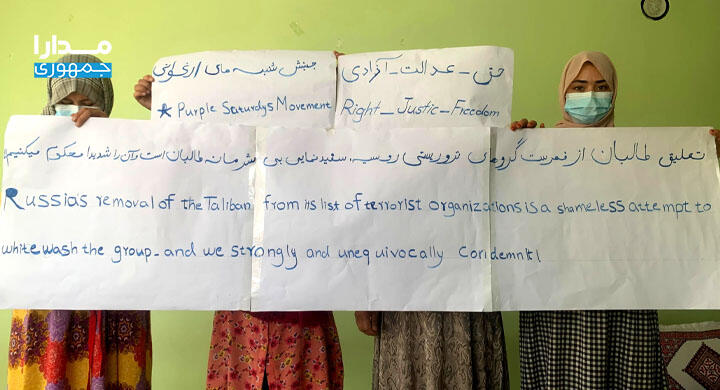 مدارا
جمهوری
جنبش شنبه های ارغوانی
* Purple Saturdys Movement
حق - عدالت - آزادی
Right - Justic - Freedom
تعلیق طالبان از فهرست گروهای تروریستی روسیه، سفیدنمایی بی شرمانه طالبان است و آن را شدیدا محکوم میکنیم!
Russia's removal of the Taliban from its list of terrorist organizations is a shameless attempt to
white wash the group - and we strongly and unequivocally Condemn it!